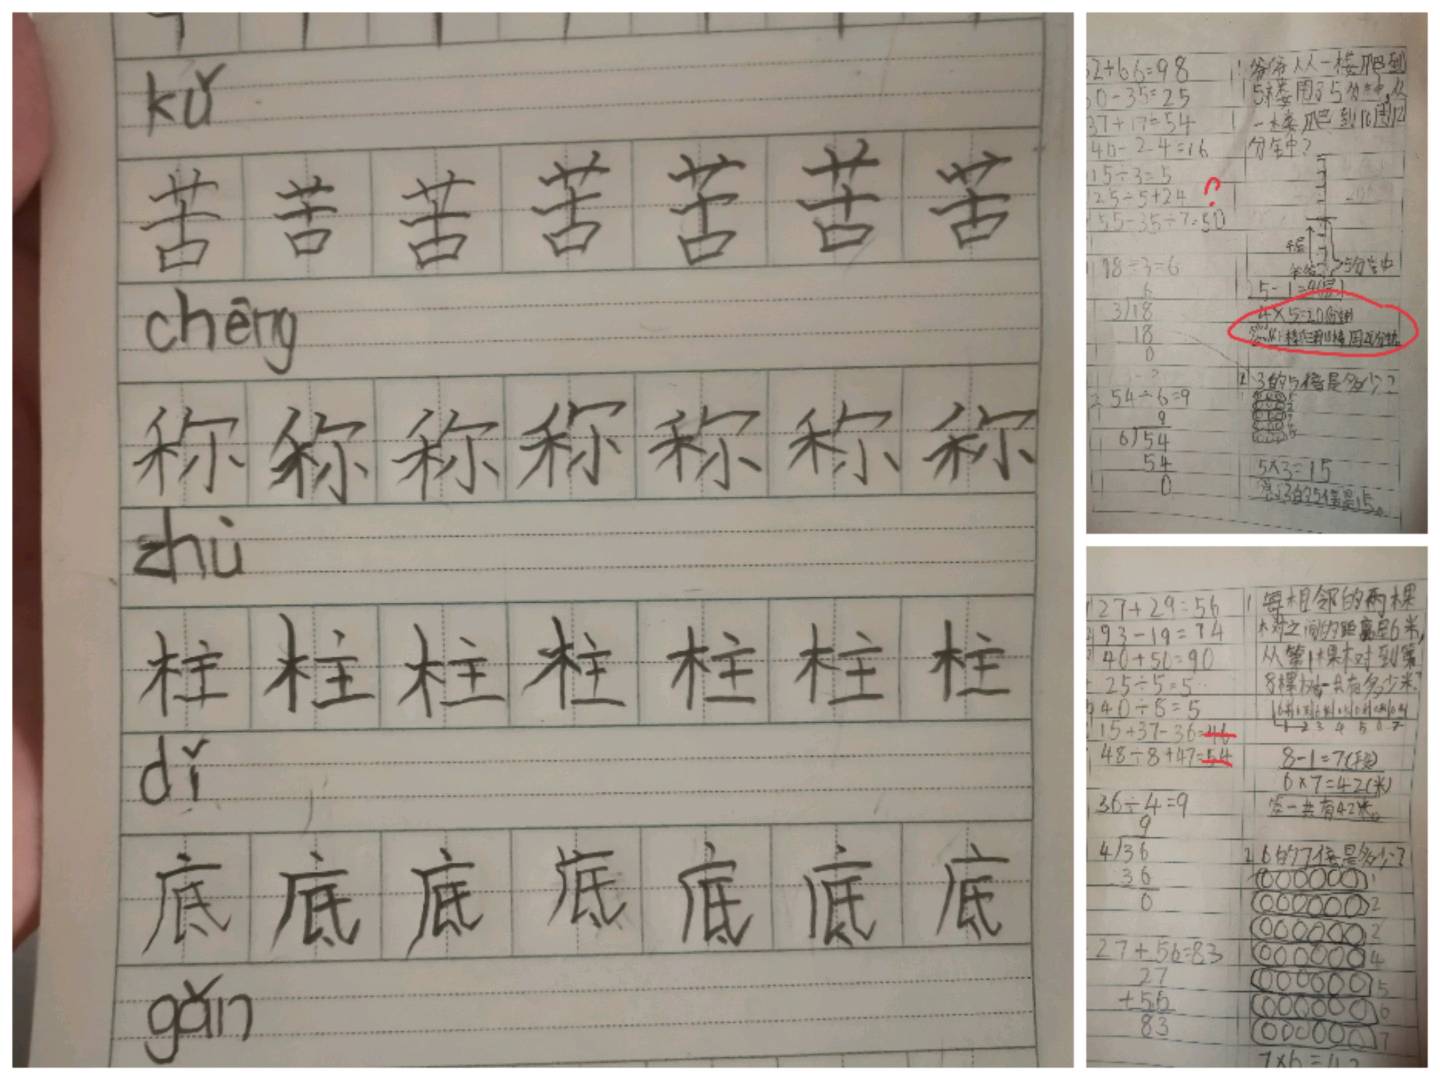 kǔ
苦 苦 苦 苦 苦 苦 苦
chēng
称 称 称 称 称 称 称
zhù
柱 柱 柱 柱 柱 柱 柱
dǐ
底 底 底 底 底 底 底
gǎn
2+66=98
0-35=25
37+17=54
40-24=16
15÷3=5
25÷5+24
?
55-35÷7=50
18÷3=6
6
3 18
18
0
54÷6=9
9
6 54
54
0
爷爷从一楼爬到
5楼用了5分钟,从
一楼爬到
分钟?
5-1=4(层)
4×5=20(分钟)
2 3的5倍是多少?
5×3=15
答:3的5倍是15。
27+29=56
93-19=74
40+50=90
25÷5=5
40÷8=5
15+37-36=46
48÷8+47=54
36÷4=9
9
4 36
36
0
27+56=83
27
+56
83
1 每相邻的两棵
树之间的距离是6米,
从第1棵树到第
8棵树一共有多少米?
1 2 3 4 5 6 7
8-1=7(段)
6×7=42(米)
答一共有42米。
2 6的7倍是多少?
1
2
2
4
5
6
7
7×6=42